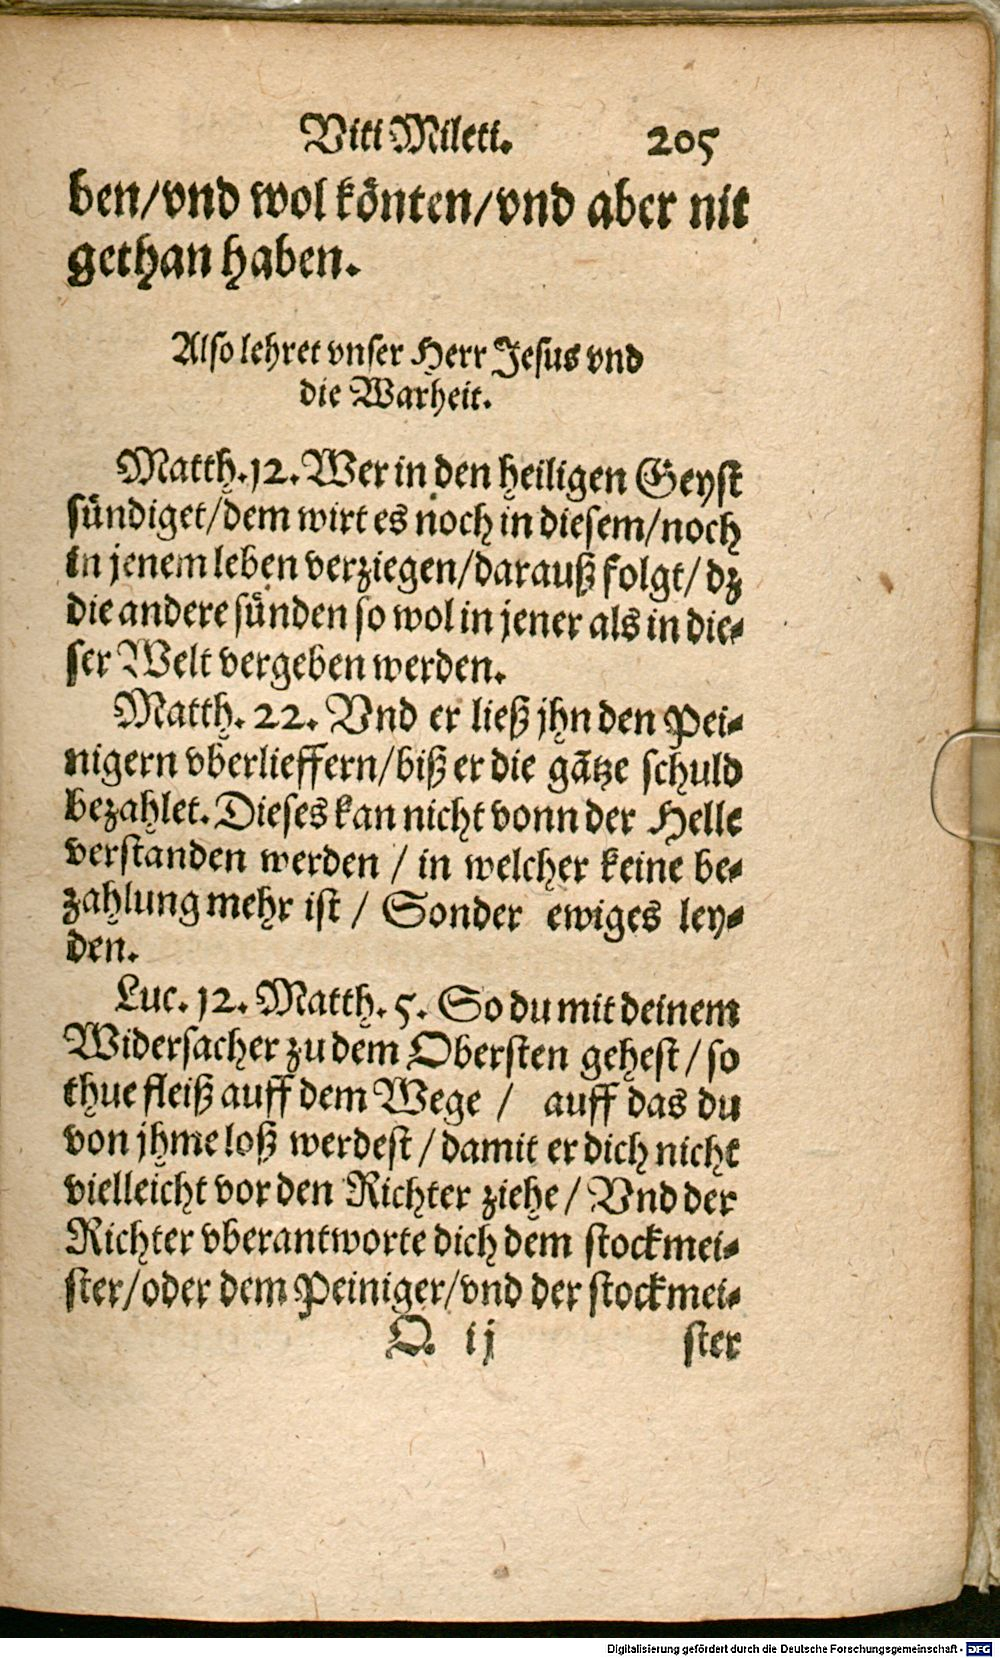 Viti Mileti. 205
ben/vnd wol könten/vnd aber nit
gethan haben.
Also lehret vnser Herr Jesus vnd
die Warheit.
Matth. 12. Wer in den heiligen Geyst
sündiget/dem wirt es noch in diesem/noch
in jenem leben verziegen/darauß folgt/ dz
die andere sünden so wol in jener als in die-
ser Welt vergeben werden.
Matth. 22. Vnd er ließ jhn den Pei-
nigern vberlieffern/biß er die gātze schuld
bezahlet. Dieses kan nicht vonn der Helle
verstanden werden / in welcher keine be-
zahlung mehr ist / Sonder ewiges ley-
den.
Luc. 12. Matth. 5. So du mit deinem
Widersacher zu dem Obersten gehest / so
thue fleiß auff dem Wege / auff das du
von jhme loß werdest / damit er dich nicht
vielleicht vor den Richter ziehe / Vnd der
Richter vberantworte dich dem stockmei-
ster/oder dem Peiniger/vnd der stockmei-
O. ij ster
Digitalisierung gefördert durch die Deutsche Forschungsgemeinschaft - DFG